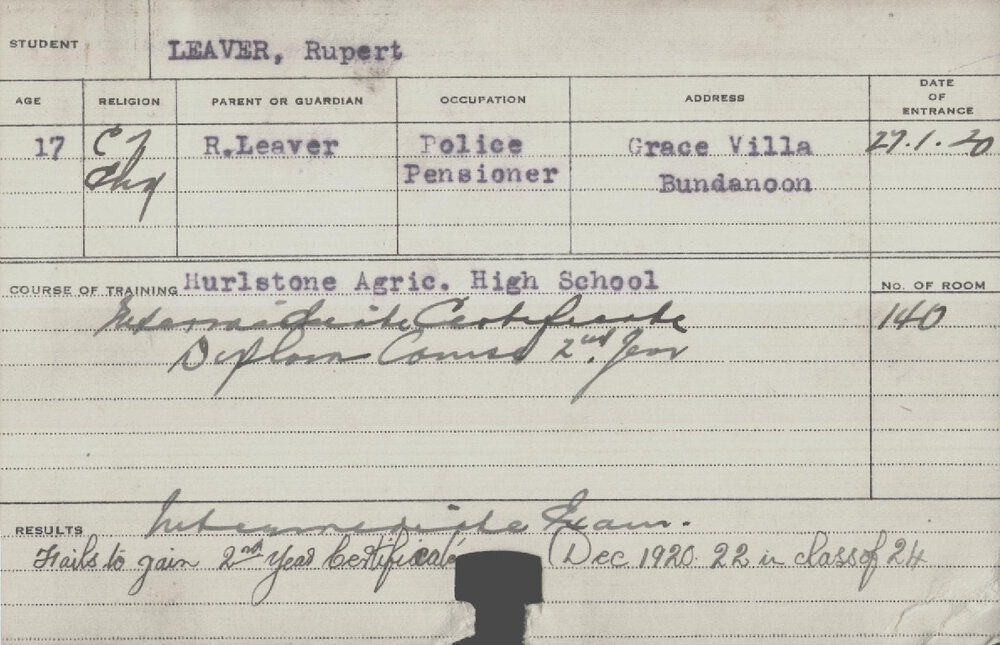 STUDENT LEAVER, Rupert
AGE RELIGION PARENT OR GUARDIAN OCCUPATION ADDRESS DATE OF ENTRANCE
17 C of R.Leaver Police Grace Villa 27.1.20
Eng Pensioner Bundanoon
COURSE OF TRAINING Hurlstone Agric. High School No. OF ROOM
Intermediate Certificate 140
Diploma Course 2nd Year
RESULTS Intermediate Exam.
Fails to gain 2nd Year Certificate (Dec 1920. 22 in class of 24